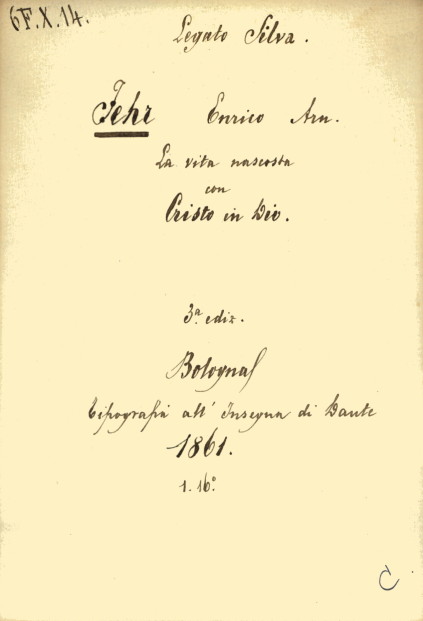 6F.X.14.
Legato Silva.
Fehr Enrico Arn.
La vita nascosta
con
Cristo in Dio.
3ª ediz.
Bologna
Tipografia all' Insegna di Dante
1861.
1. 16°
C